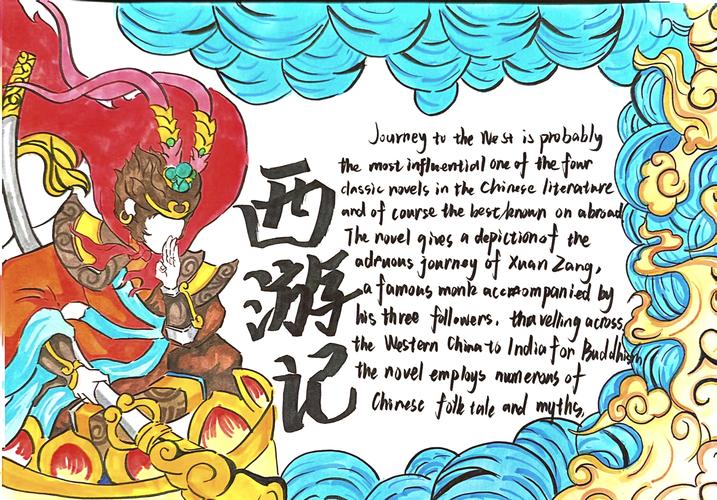 西游记
Journey to the West is probably
the most influential one of the four
classic novels in the Chinese literature
and of course the best known on abroad
The novel gives a depiction of the
adruous journey of Xuan Zang,
a famous monk accompanied by
his three followers. thavelling across
the Western China to India for Buddhism
the novel employs numerons of
Chinese folk tale and myths,